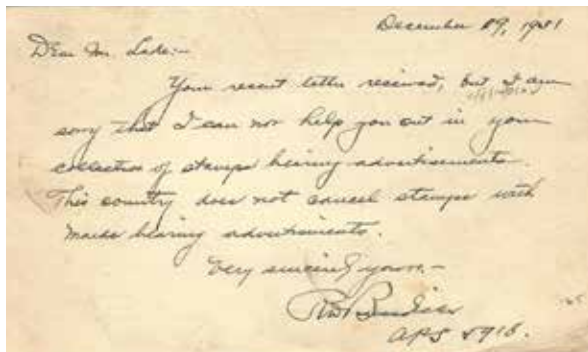 December 29, 1931
Dear Mr. Lake:-
Your recent letter received, but I am
sorry that I can not help you out in your
collection of stamps bearing advertisements.
This country does not cancel stamps with
marks bearing advertisements.
Very sincerely yours,-
APS 5918.